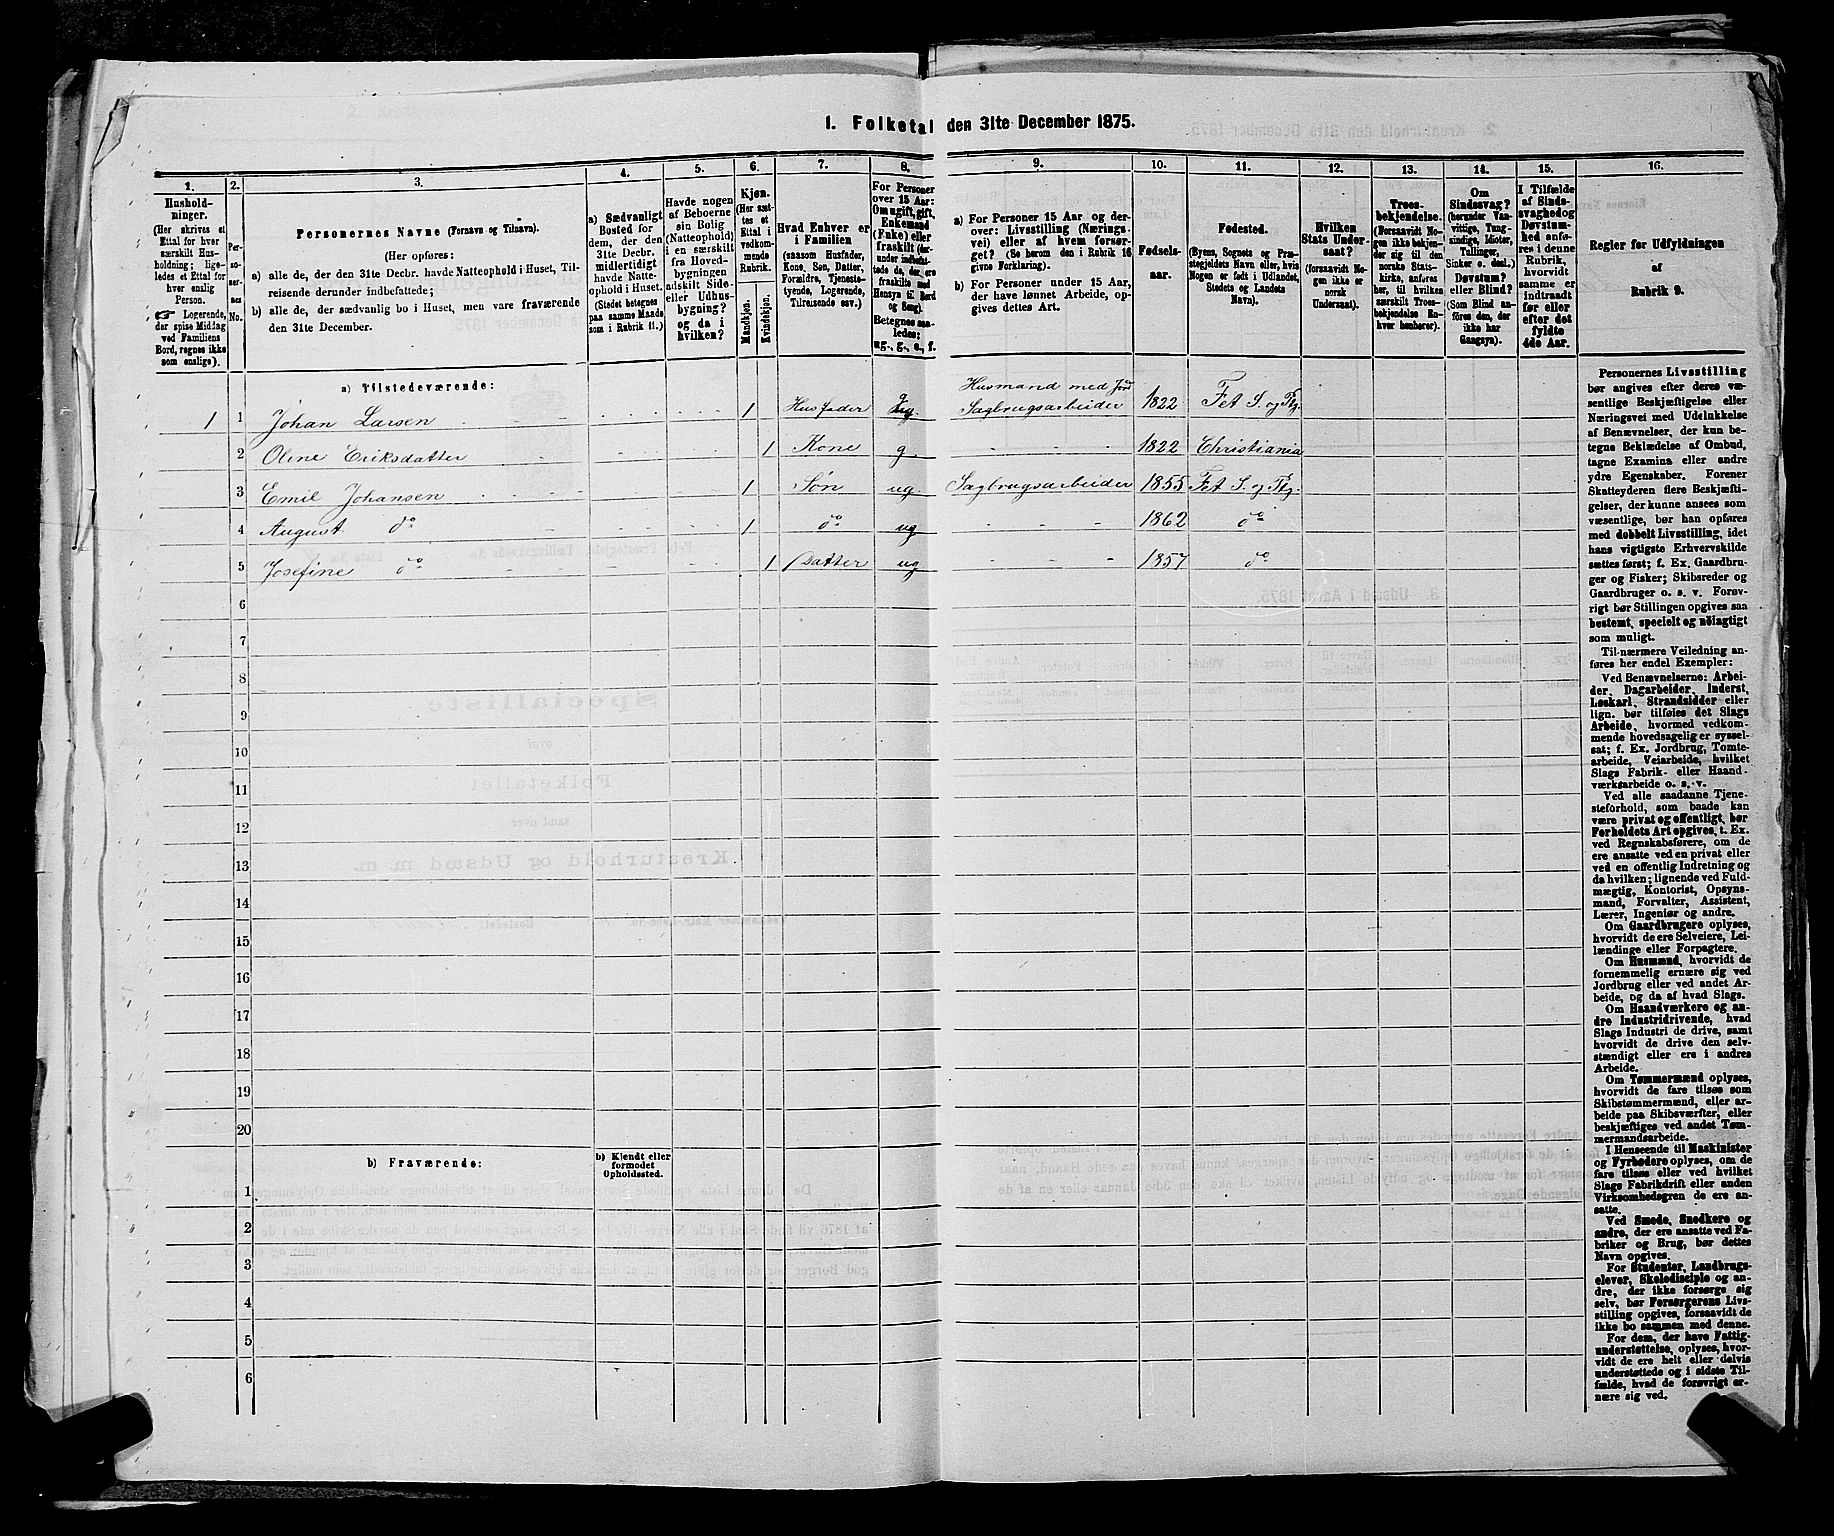 1. Folketal den 31te December 1875.
1.
Hushold-
ninger.
(Her skrives et
Ettal for hver
særskilt Hus-
holdning; lige-
ledes et Ettal for
hver enslig
Person.
☞ Logerende,
der spise Middag
ved Familiens
Bord, regnes ikke
som enslige).
2.
Per-
so-
ner-
nes
No.
3.
Personernes Navne (Fornavn og Tilnavn).
(Her opføres:
a) alle de, der den 31te Decbr. havde Natteophold i Huset, Til-
reisende derunder indbefattede;
b) alle de, der sædvanlig bo i Huset, men vare fraværende
den 31te December.
4.
a) Sædvanligt
Bosted for
dem, der den
31te Decbr.
midlertidigt
havde Natte-
ophold i Huset.
(Stedet betegnes
paa samme Maade
som i Rubrik 11.)
5.
Havde nogen
af Beboerne
sin Bolig
(Natteophold)
i en særskilt
fra Hoved-
bygningen
adskilt Side-
eller Udhus-
bygning?
og da i
hvilken?
6.
Kjøn.
(Her sæt-
tes et
Ettal i
vedkom-
mende
Rubrik.
Mandkjøn.
Kvindekjøn.
7.
Hvad Enhver er
i Familien
(saasom Husfader,
Kone, Søn, Datter,
Forældre, Tjeneste-
tyende, Logerende,
Tilreisende osv.)
8.
For Personer
over 15 Aar:
Om ugift, gift,
Enkemand
(Enke) eller
fraskilt (der-
under indbefat-
tede de, der ere
fraskilte med
Hensyn til Bord
og Seng).
Betegnes saa-
ledes:
ug., g., e., f.
9.
a) For Personer 15 Aar og der-
over: Livsstilling (Nærings-
vei) eller af hvem forsør-
get? (Se herom den i Rubrik 16
givne Forklaring).
b) For Personer under 15 Aar,
der have lønnet Arbeide, op-
gives dettes Art.
10.
Fødsels-
aar.
11.
Fødested.
(Byens, Sognets og Præ-
stegjeldets Navn eller, hvis
Nogen er født i Udlandet,
Stedets og Landets
Navn).
12.
Hvilken
Stats Under-
saat?
(forsaavidt No-
gen ikke er
norsk
Undersaat).
13.
Troes-
bekjendelse.
(Forsaavidt No-
gen ikke bekjen-
der sig til den
norske Stats-
kirke, anføres
her, til hvilken
særskilt Troes-
bekjendelse En-
hver henhører).
14.
Om
Sindssvag?
(herunder Van-
vittige, Tung-
sindige, Idioter,
Tullinger,
Sinker o. desl.)
Døvstum?
eller Blind?
(Som Blind an-
føres den, der
ikke har
Gangsyn).
15.
I Tilfælde
af Sinds-
svaghed og
Døvstum-
hed anfø-
res i denne
Rubrik,
hvorvidt
samme er
indtraadt
før eller
efter det
fyldte
4de Aar.
16.
Regler for Udfyldningen
af
Rubrik 9.
a) Tilstedeværende:
1 1 Johan Larsen 1 Husfader g Husmand med Jord Sagbrugsarbeider 1822 Fet S. og Ptg.
2 Oline Eriksdatter 1 Kone g 1822 Christiania
3 Emil Johansen 1 Søn ug Sagbrugsarbeider 1855 Fet S. og Ptg.
4 August do 1 do ug 1862 do
5 Josefine do 1 Datter ug 1857 do
6
7
8
9
10
11
12
13
14
15
16
17
18
19
20
b) Fraværende:
b) Kjendt eller
formodet
Opholdssted.
1
2
3
4
5
6
Personernes Livsstilling
bør angives efter deres væ-
sentlige Beskjæftigelse eller
Næringsvei med Udelukkelse
af Benævnelser, der kun be-
tegne Beklædelse af Ombud,
tagne Examina eller andre
ydre Egenskaber. Forener
Skatteyderen flere Beskjæfti-
gelser, der kunne ansees som
væsentlige, bør han opføres
med dobbelt Livsstilling, idet
hans vigtigste Erhvervskilde
sættes først; f. Ex. Gaardbru-
ger og Fisker; Skibsreder og
Gaardbruger o. s. v. Forøv-
rigt bør Stillingen opgives saa
bestemt, specielt og nöiagtigt
som muligt.
Til nærmere Veiledning an-
føres her endel Exempler:
Ved Benævnelserne: Arbei-
der, Dagarbeider, Inderst,
Løskarl, Strandsidder eller
lign. bør tilføies det Slags
Arbeide, hvormed vedkom-
mende hovedsagelig er syssel-
sat; f. Ex. Jordbrug, Tomte-
arbeide, Veiarbeide, hvilket
Slags Fabrik- eller Haand-
værksarbeide o. s. v.
Ved alle saadanne Tjene-
steforhold, som baade kan
være privat og offentligt, bør
Forholdets Art opgives, t. Ex.
ved Regnskabsførere, om de
ere ansatte ved en privat eller
ved en offentlig Indretning og
da hvilken; lignende ved Fuld-
mægtig, Kontorist, Opsyns-
mand, Forvalter, Assistent,
Lærer, Ingeniør og andre.
Om Gaardbrugere oplyses,
hvorvidt de ere Selveiere, Lei-
lændinge eller Forpagtere.
Om Husmænd, hvorvidt de
fornemmelig ernære sig ved
Jordbrug eller ved andet Ar-
beide, og da af hvad Slags.
Om Haandværkere og an-
dre Industridrivende, hvad
Slags Industri de drive, samt
hvorvidt de drive den selv-
stændigt eller ere i andres
Arbeide.
Om Tømmermænd oplyses,
hvorvidt de fare tilsøs som
Skibstømmermænd, eller ar-
beide paa Skibsværfter, eller
beskjæftiges ved andet Tøm-
mermandsarbeide.
I Henseende til Maskinister
og Fyrbødere oplyses, om de
fare tilsøs eller ved hvilket
Slags Fabrikdrift eller anden
Virksomhedsgren de ere an-
satte.
Ved Smede, Snedkere og
andre, der ere ansatte ved Fa-
briker og Brug, bør dettes
Navn opgives.
For Studenter, Landbrugs-
elever, Skoledisciple og an-
dre, der ikke forsørge sig
selv, bør Forsørgerens Livs-
stilling opgives, forsaavidt de
ikke bo sammen med denne.
For dem, der have Fattig-
understøttelse, oplyses, hvor-
vidt de ere helt eller delvis
understøttede og i sidste Til-
fælde, hvad de forøvrigt er-
nære sig ved.